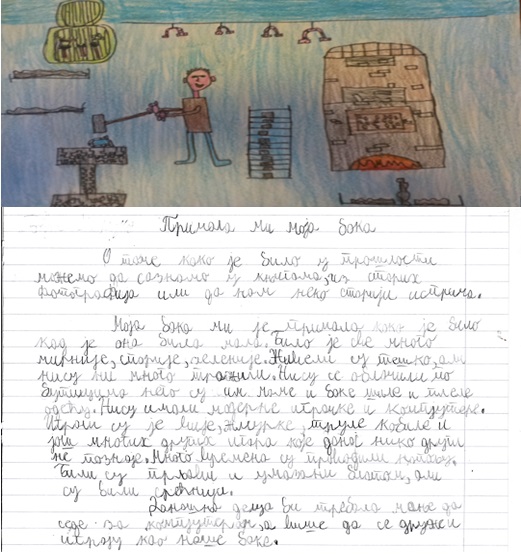 Причала ми моја бака
О томе како је било у прошлости
можемо да сазнамо у књигама, из старих
фотографија или да нам неко старији исприча.
Моја бака ми је причала како је било
кад је она била мала. Било је све много
мирније, спорије, зеленије. Живели су тешко, али
нису ни много тражили. Нису се облачили по
бутицима него су им маме и баке шиле и плеле
одећу. Нису имали модерне играчке и компјутере.
Играли су је више, жмурке, труле кобиле и
још многих других игара које данас нико други
не познаје. Много времена су проводили напољу.
Били су прљави и умазани блатом, али
су били срећнији.
Данашња деца би требала мање да
седе за компјутером, а више да се друже и
играју као наше баке.